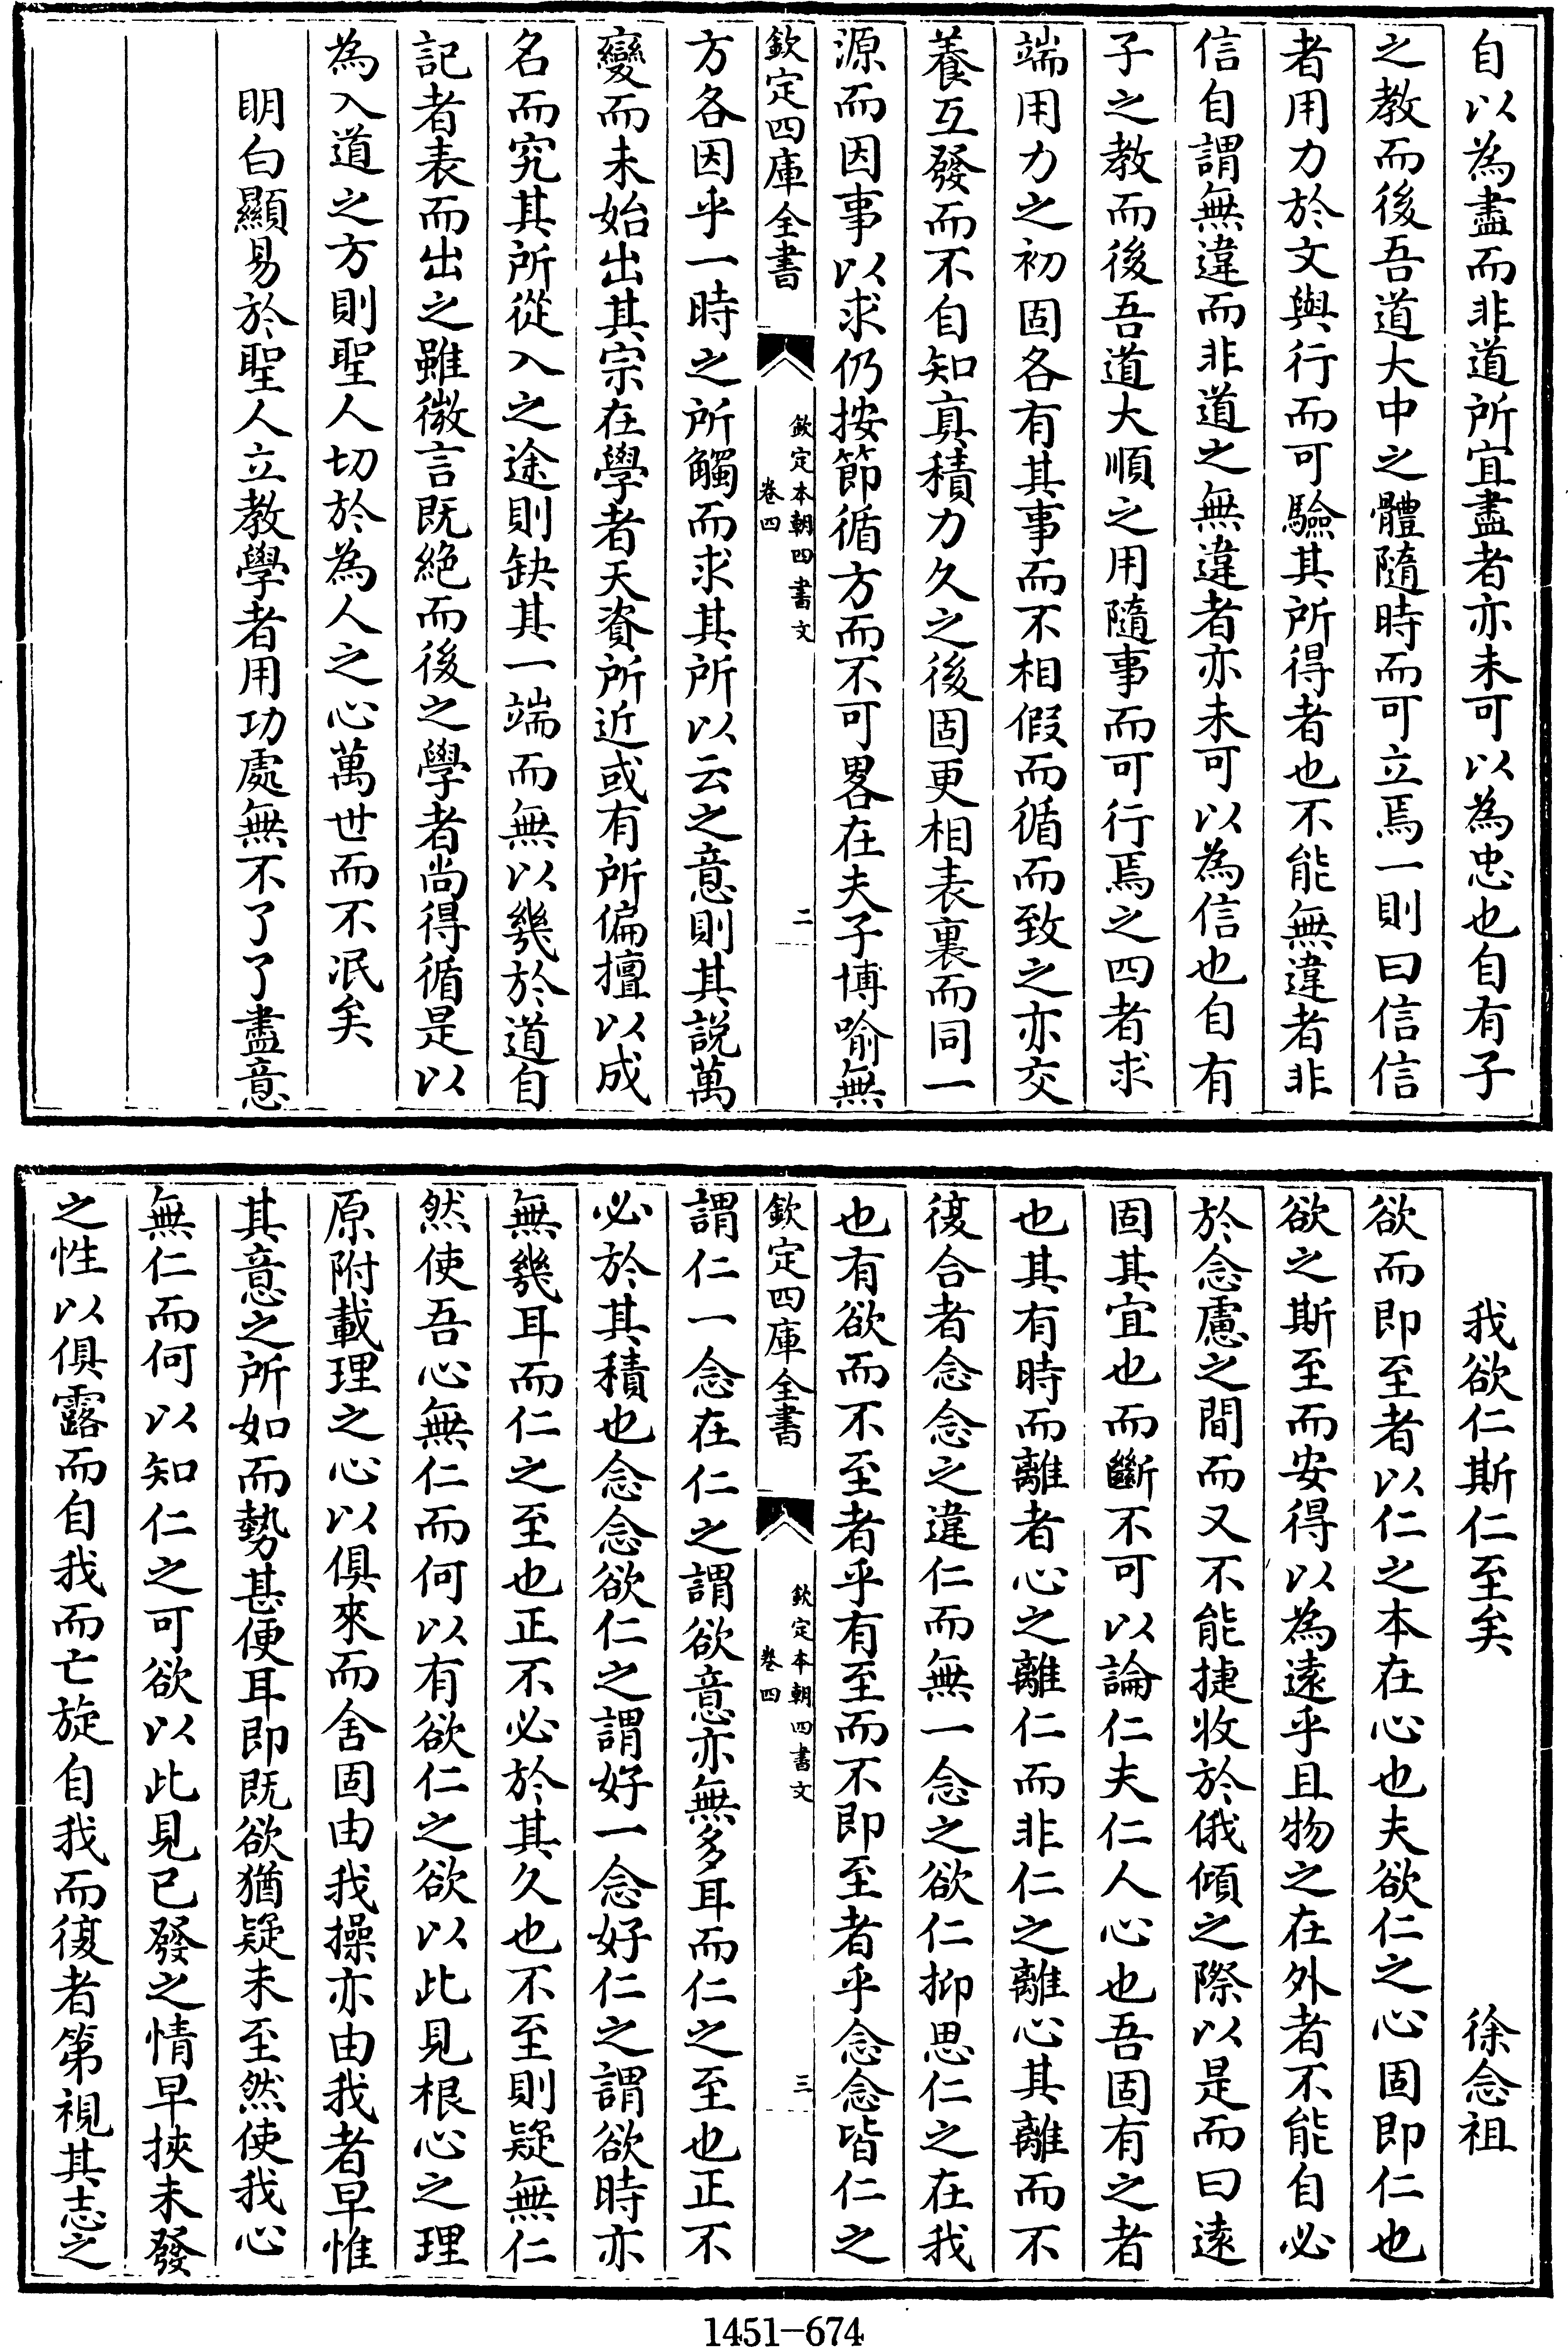 自以為盡而非道所宜盡者亦未可以為忠也自有子
之教而後吾道大中之體隨時而可立焉一則曰信信
者用力於文與行而可驗其所得者也不能無違者非
信自謂無違而非道之無違者亦未可以為信也自有
子之教而後吾道大順之用隨事而可行焉之四者求
端用力之初固各有其事而不相假而循而致之亦交
養互發而不自知真積力久之後固更相表裏而同一
源而因事以求仍按節循方而不可畧在夫子博喻無
欽定四庫全書
欽定本朝四書文
卷四
二
方各因乎一時之所觸而求其所以云之意則其說萬
變而未始出其宗在學者天資所近或有所偏擅以成
名而究其所從入之途則缺其一端而無以幾於道自
記者表而出之雖微言既絕而後之學者尚得循是以
為入道之方則聖人切於為人之心萬世而不泯矣
明白顯易於聖人立教學者用功處無不了了盡意
我欲仁斯仁至矣 徐念祖
欲而即至者以仁之本在心也夫欲仁之心固即仁也
欲之斯至而安得以為遠乎且物之在外者不能自必
於念慮之間而又不能捷收於俄傾之際以是而曰遠
固其宜也而斷不可以論仁夫仁人心也吾固有之者
也其有時而離者心之離仁而非仁之離心其離而不
復合者念念之違仁而無一念之欲仁抑思仁之在我
也有欲而不至者乎有至而不即至者乎念念皆仁之
欽定四庫全書
欽定本朝四書文
卷四
三
謂仁一念在仁之謂欲意亦無多耳而仁之至也正不
必於其積也念念欲仁之謂好一念好仁之謂欲時亦
無幾耳而仁之至也正不必於其久也不至則疑無仁
然使吾心無仁而何以有欲仁之欲以此見根心之理
原附載理之心以俱來而舍固由我操亦由我者早惟
其意之所如而勢甚便耳即既欲猶疑未至然使我心
無仁而何以知仁之可欲以此見已發之情早挾未發
之性以俱露而自我而亡旋自我而復者第視其志之
1451-674